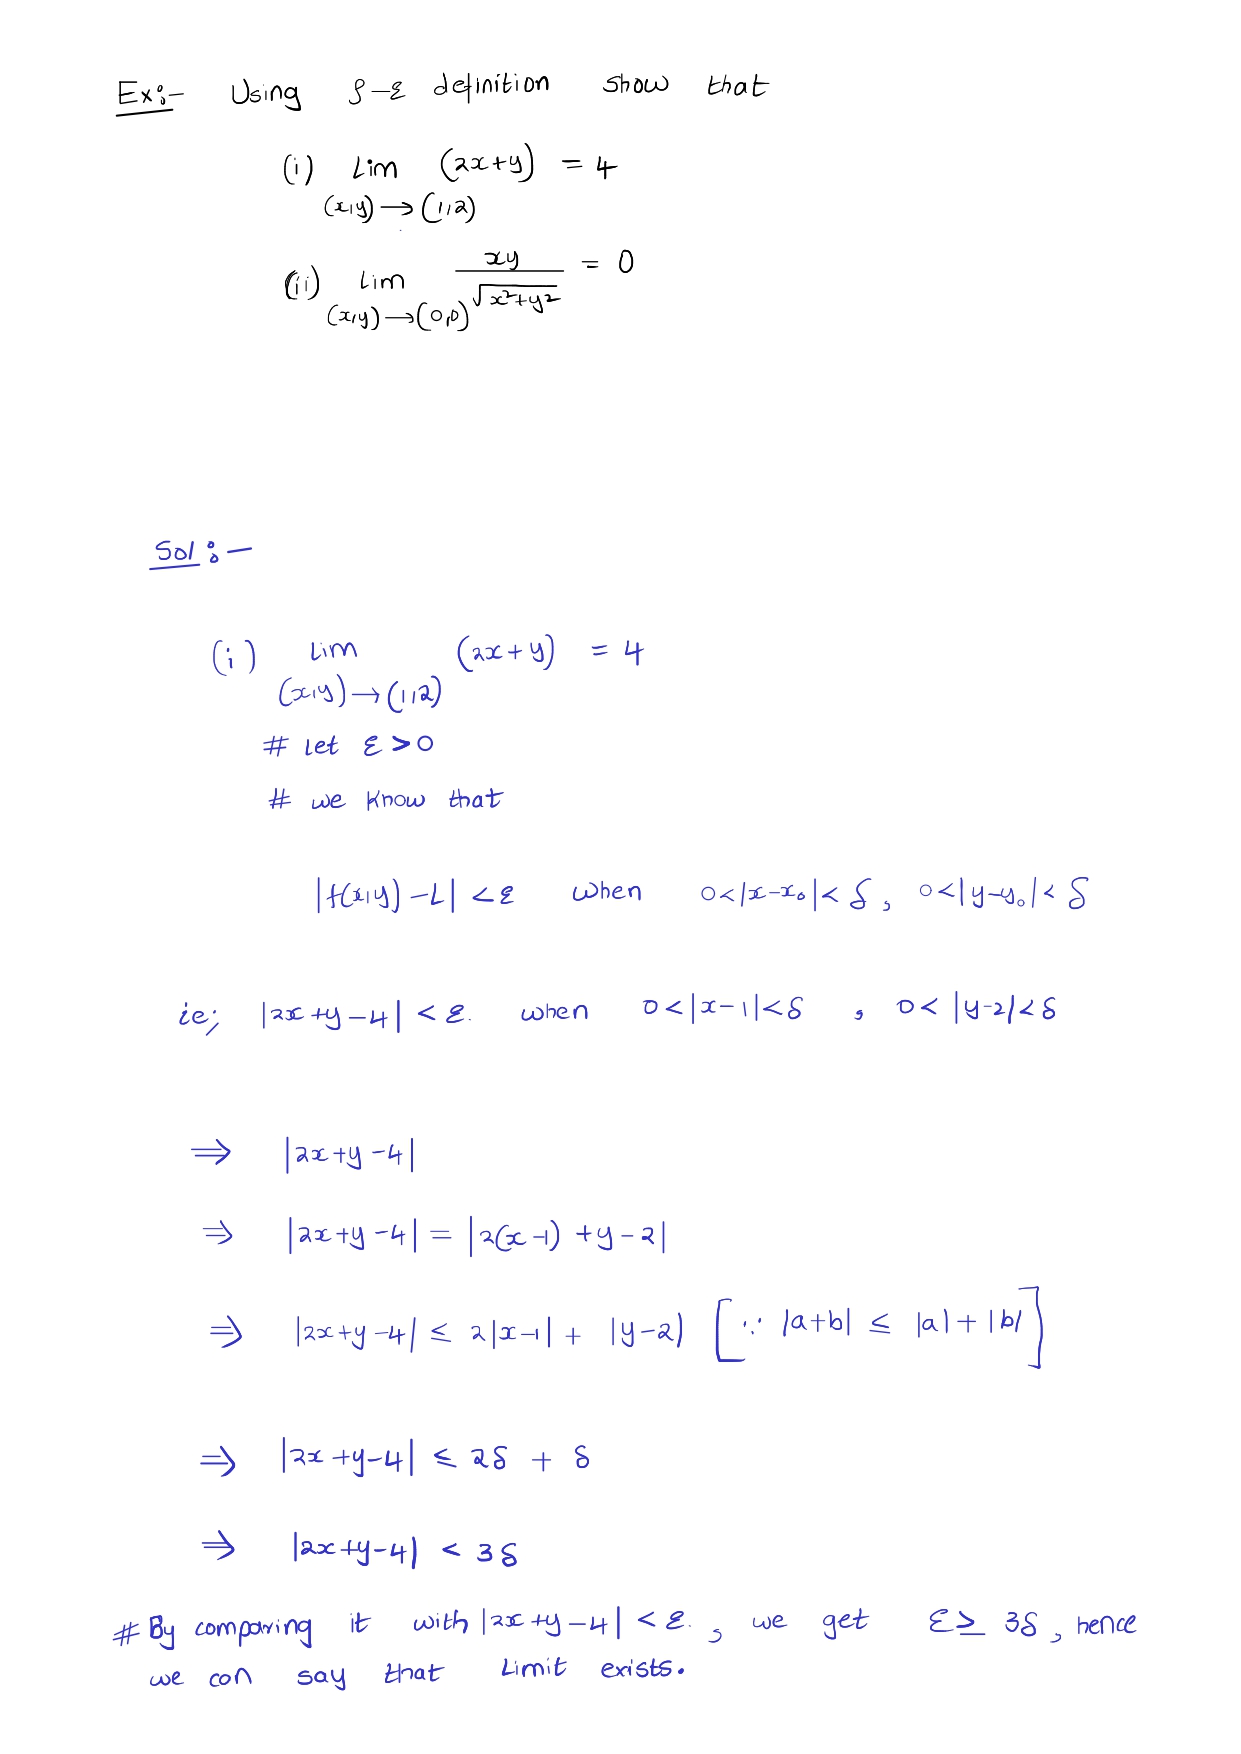 Ex:- Using δ-ε definition show that
(i) Lim (2x+y) = 4
(x,y) → (1,2)
(ii) Lim xy/√x²+y² = 0
(x,y) → (0,0)
Sol :-
(i) Lim (2x+y) = 4
(x,y) → (1,2)
# Let ε > 0
# we know that
|f(x,y) - L| < ε when 0<|x-x₀|< δ, 0<|y-y₀|< δ
ie; |2x+y-4| < ε. when 0<|x-1|<δ , 0< |y-2|<δ
⇒ |2x+y-4|
⇒ |2x+y-4| = |2(x-1) +y-2|
⇒ |2x+y-4| ≤ 2|x-1| + |y-2| [∵ |a+b| ≤ |a|+|b|]
⇒ |2x+y-4| ≤ 2δ + δ
⇒ |2x+y-4| < 3δ
# By comparing it with |2x+y-4| < ε. , we get ε ≥ 3δ, hence
we can say that Limit exists.